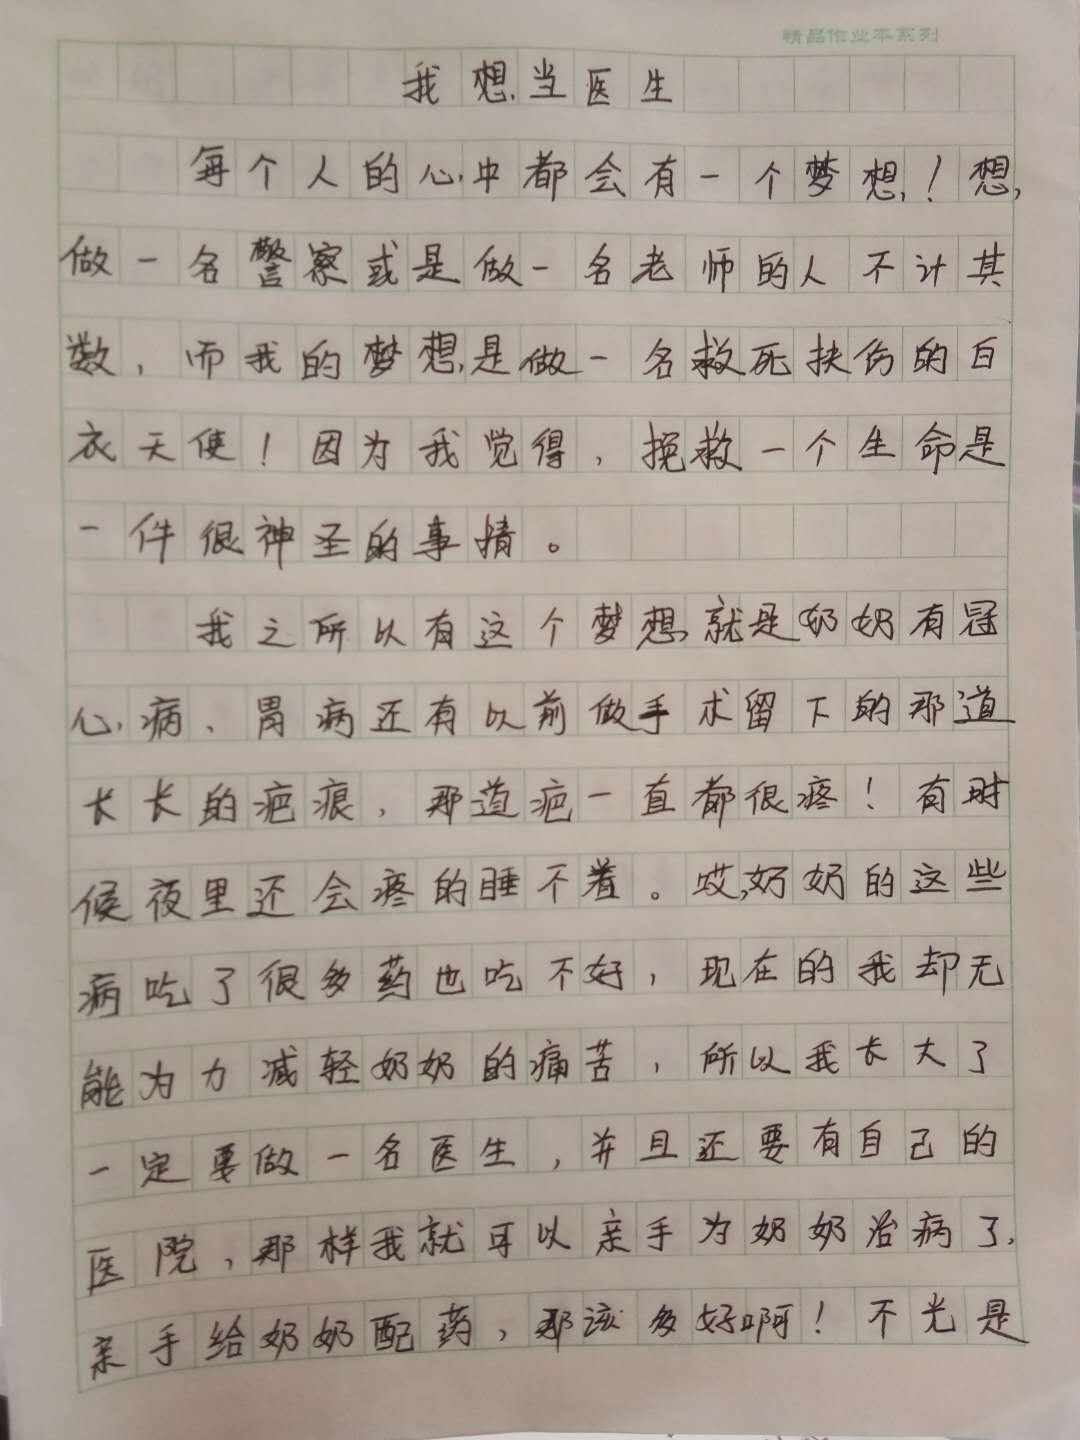 精品作业本系列
我想当医生
每个人的心中都会有一个梦想！想
做一名警察或是做一名老师的人不计其
数，而我的梦想是做一名救死扶伤的白
衣天使！因为我觉得，挽救一个生命是
一件很神圣的事情。
我之所以有这个梦想就是奶奶有冠
心病、胃病还有以前做手术留下的那道
长长的疤痕，那道疤一直都很疼！有时
候夜里还会疼的睡不着。哎，奶奶的这些
病吃了很多药也吃不好，现在的我却无
能为力减轻奶奶的痛苦，所以我长大了
一定要做一名医生，并且还要有自己的
医院，那样我就可以亲手为奶奶治病了，
亲手给奶奶配药，那该多好啊！不光是